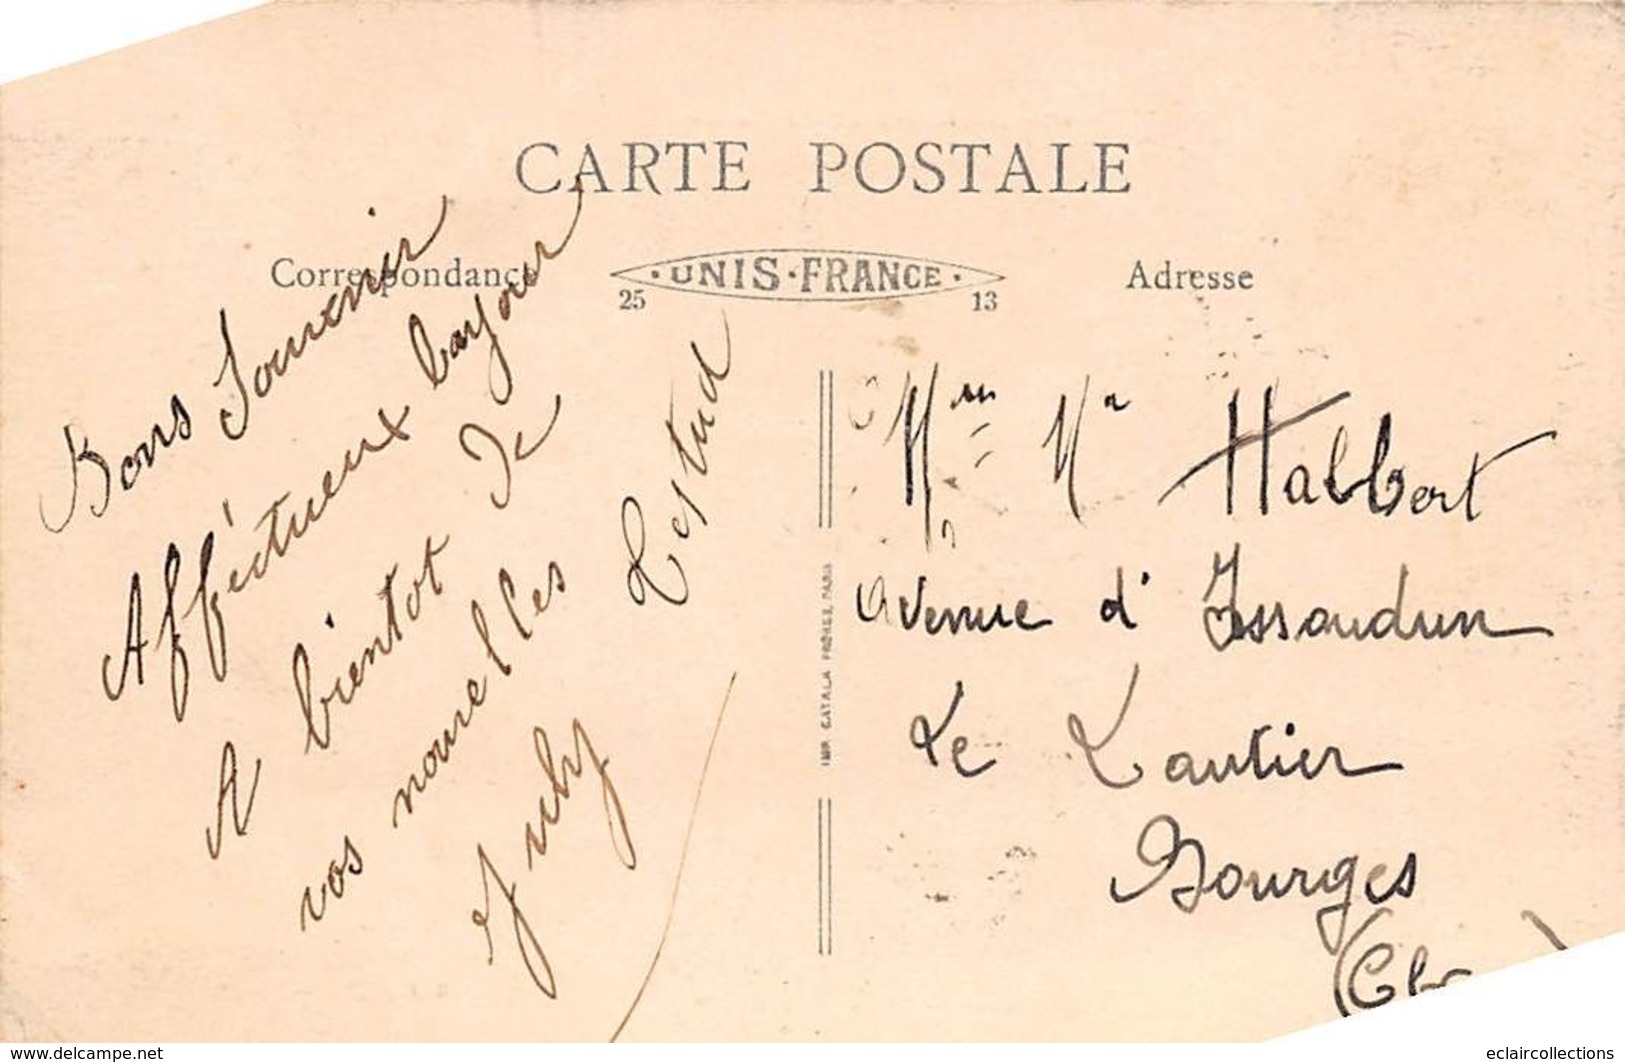 CARTE POSTALE
Correspondance
UNIS-FRANCE
25 13
Adresse
Bons Souvenir
Affectueux
A bientot De
vos nouvelles
Testud
IMP. CATALA FRERES, PARIS
Mme Mr Halbert
avenue d' Issoudun
Le Lautier
Bourges
(Cher)
www.delcampe.net
eclaircollections